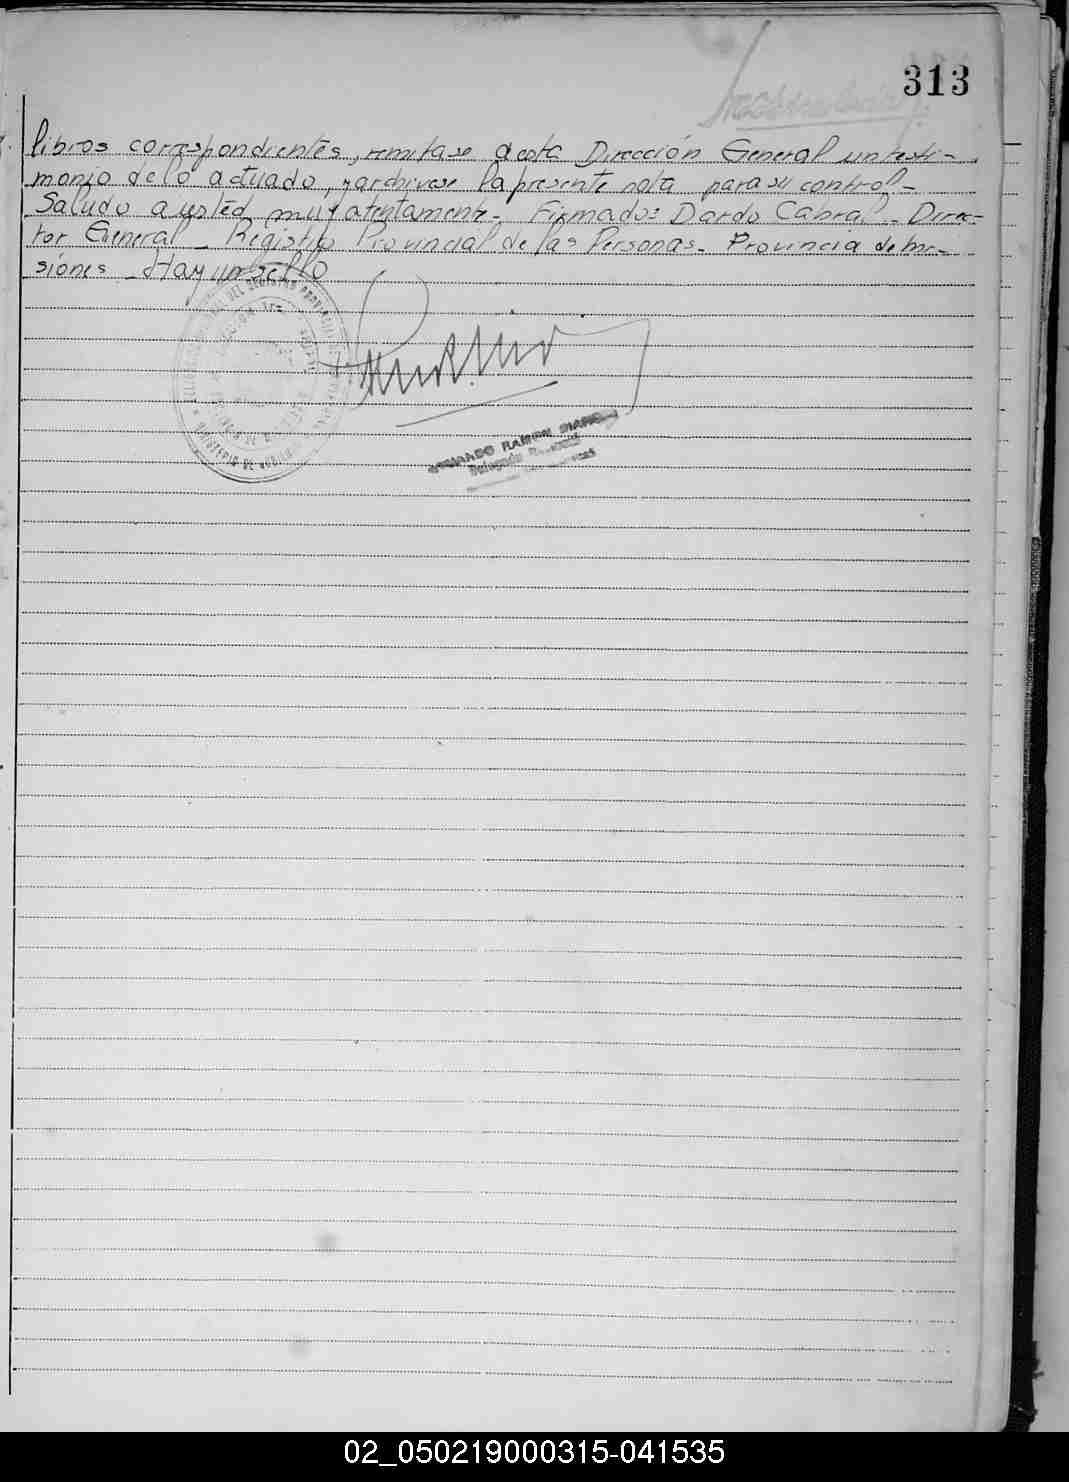 313
libros correspondientes, remitase a esta Dirección General un testi-
monio de lo actuado, y archivese la presente nota para su control-
Saludo a usted muy atentamente- Firmados Dardo Cabral - Direc-
tor General - Registro Provincial de las Personas - Provincia de Mi-
siones - Hay un sello
RAMON
02_050219000315-041535